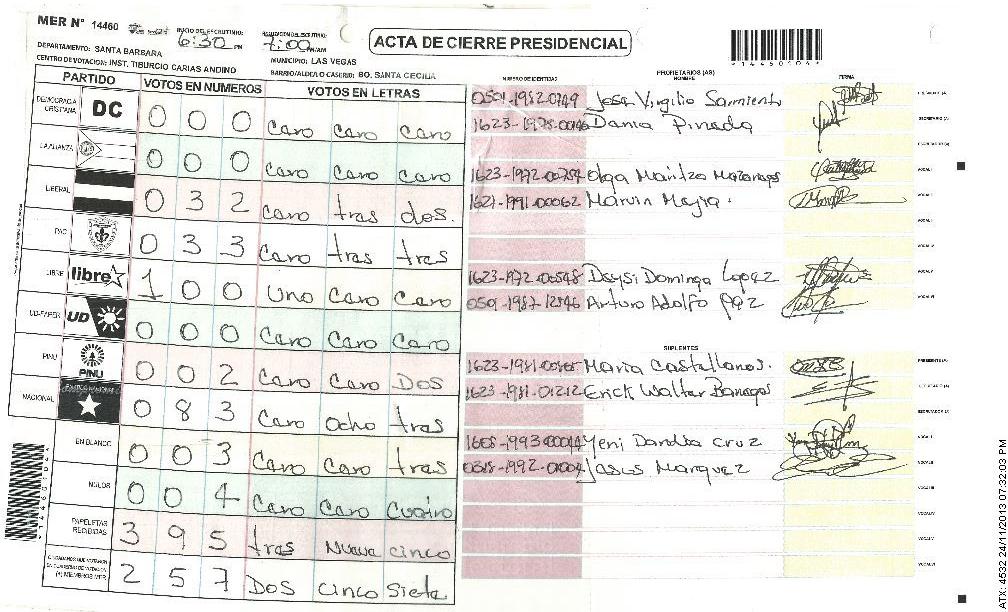 MER N° 14460
INICIO DEL ESCRUTINIO: 6:30 PM
7:00 PM/AM
ACTA DE CIERRE PRESIDENCIAL
*14460104*
DEPARTAMENTO: SANTA BARBARA
MUNICIPIO: LAS VEGAS
CENTRO DE VOTACION: INST. TIBURCIO CARIAS ANDINO
BARRIO/ALDEA O CASERIO: BO. SANTA CECILIA
PARTIDO VOTOS EN NUMEROS VOTOS EN LETRAS
DEMOCRACIA CRISTIANA DC 0 0 0 Caro Caro Caro
LA ALIANZA 0 0 0 Caro Caro Caro
LIBERAL 0 3 2 Caro tras dos.
PAC 0 3 3 Caro tras tras
LIBRE libre 1 0 0 Uno Caro Caro
UD-FAPER UD 0 0 0 Caro Caro Caro
PINU PINU 0 0 2 Caro Caro DOS
NACIONAL 0 8 3 Caro Ocho tras
EN BLANCO 0 0 3 Caro Caro tras
NULOS 0 0 4 Caro Caro Cuatro
PAPELETAS RECIBIDAS 3 9 5 tras Nueva cinco
CIUDADANOS QUE VOTARON 2 5 7 DOS cinco Siete
(+) MIEMBROS MER
NUMERO DE IDENTIDAD PROPIETARIOS (AS) NOMBRE FIRMA
0501-1982-0749 Jose Virgilio Sarmiento
1623-1978-00146 Dania Pineda
1623-1972-00754 Olga Maritza
1627-1991-00062 Marvin Mejia.
1623-1972-00548 Daysi Dominga Lopez
0501-1987-12746 Arturo Adolfo Paz
SUPLENTES
Maria Castellanos.
1623-1981-01212 Erick Walter Banegas
1608-1993-00044 Yeni Cruz
0318-1992-01004 Jasus Marquez
PRESIDENTE (A)
SECRETARIO (A)
ATX: 4532 24/11/2013 07:32:03 PM